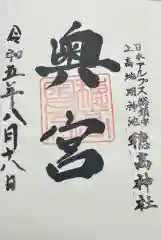 日本アルプス総鎮守
上高地明神池
穂高神社
奥宮
令和五年八月十八日